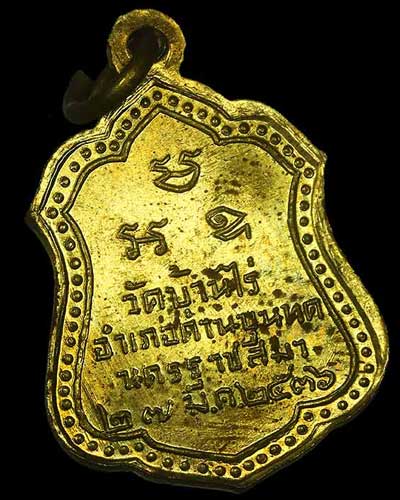 วัดบ้านไร่
อำเภอด่านขุนทด
นครราชสีมา
๒๗ มี.ค ๒๕๓๖